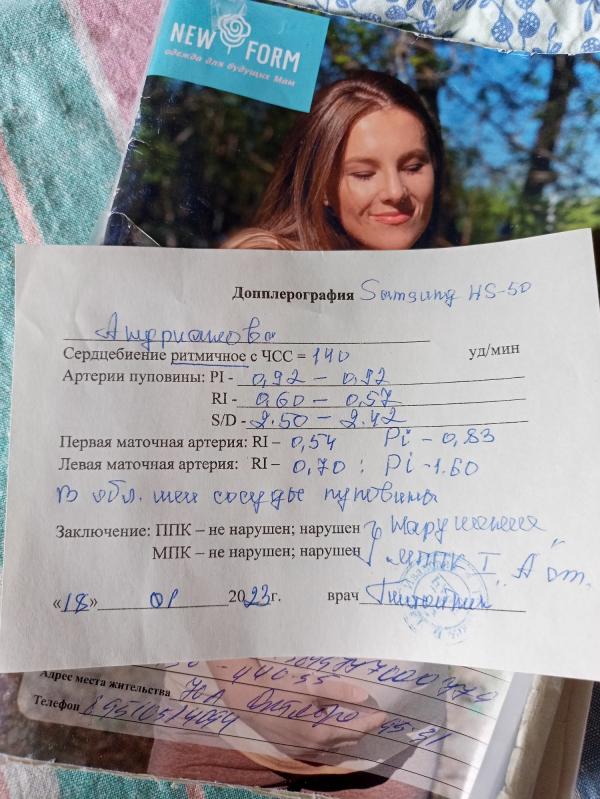 NEW FORM
одежда для будущих мам
Допплерография Samsung HS-50
Андрианова
Сердцебиение ритмичное с ЧСС = 140 уд/мин
Артерии пуповины: PI - 0,92 – 0,92
RI - 0,60 – 0,57
S/D - 2.50 – 2.42
Первая маточная артерия: RI – 0,54 Pi – 0,83
Левая маточная артерия: RI – 0,70 ; Pi -1.60
В обл. шеи сосуды пуповины
Заключение: ППК – не нарушен; нарушен Нарушения
МПК – не нарушен; нарушен МППК I "А" ст.
«18» 2023г. врач
Адрес места жительства
Телефон